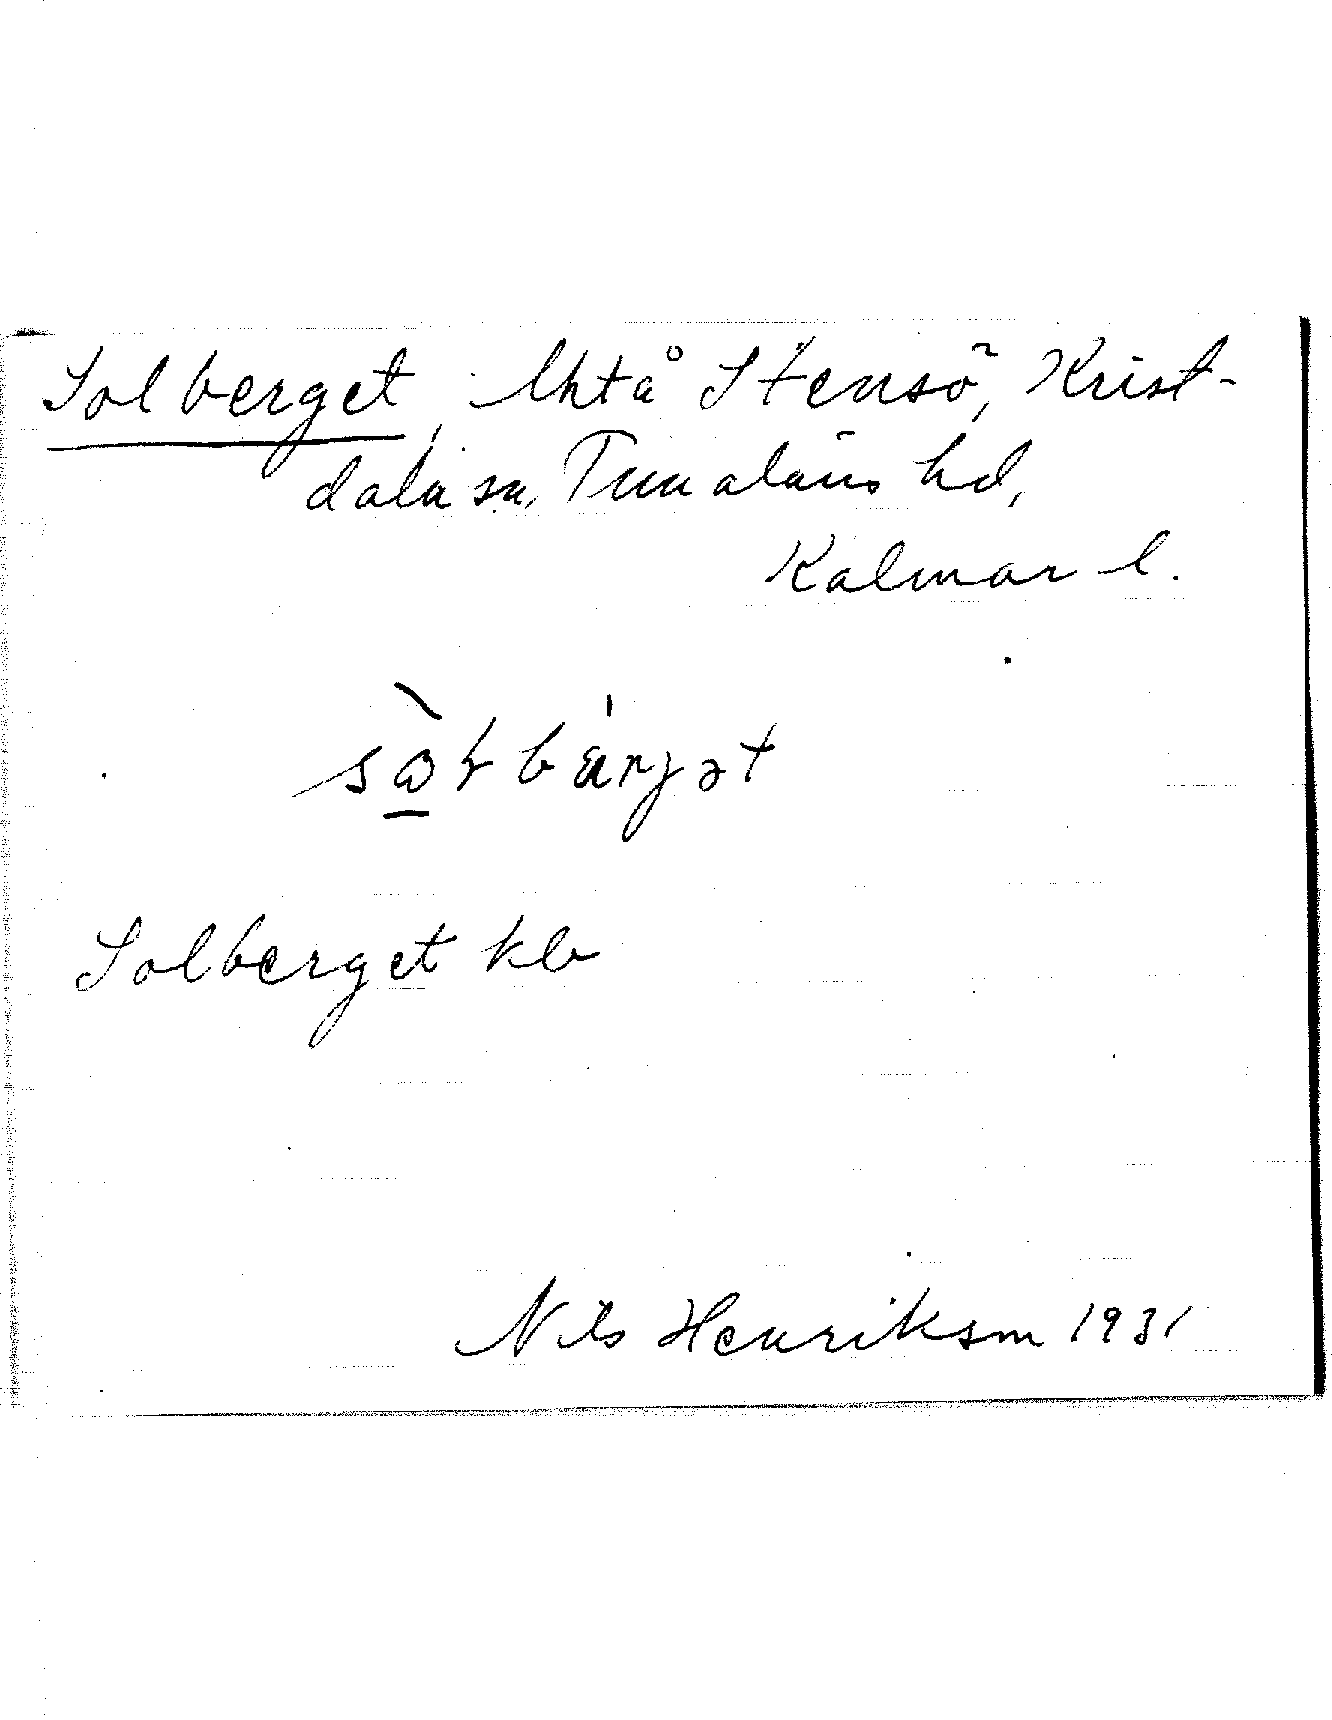 Solberget, lht å Stensö, Krist-
dala sn, Tunaläns hd,
Kalmar l.
Solberget kb
Nils Henrikson 1931